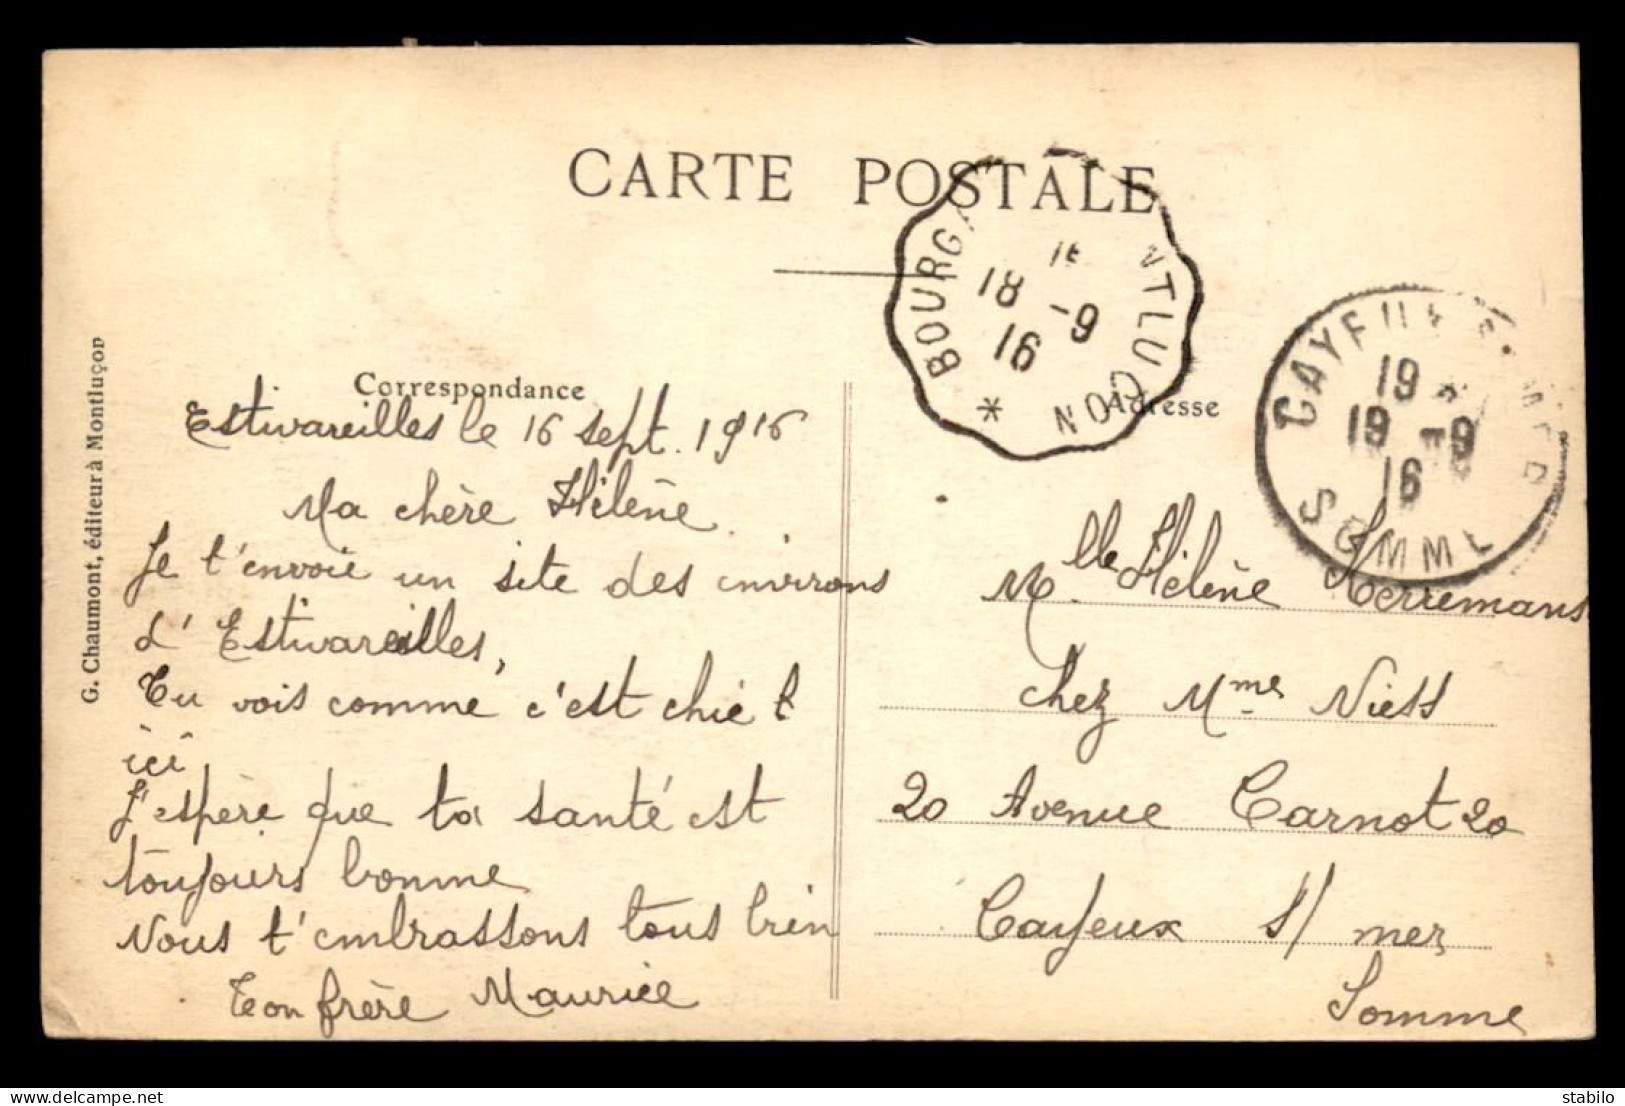 CARTE POSTALE
Correspondance
Adresse
G. Chaumont, éditeur à Montluçon
BOURGA NTLUÇON *
18 -9
16
CAYEUX S
SOMME
19
19 -9
16
Estivareilles le 16 sept. 1916
Ma chère Hélène.
Je t'envoie un site des environs
d'Estivareilles,
Tu vois comme c'est chiét
ici
J'espère que ta santé est
toujours bonne
Nous t'embrassons tous bien
Ton frère Maurice
Mlle. Hélène Herremans
chez Mme Niess
20 Avenue Carnot 20
Cayeux s/ mer
Somme
delcampe.net
stabilo